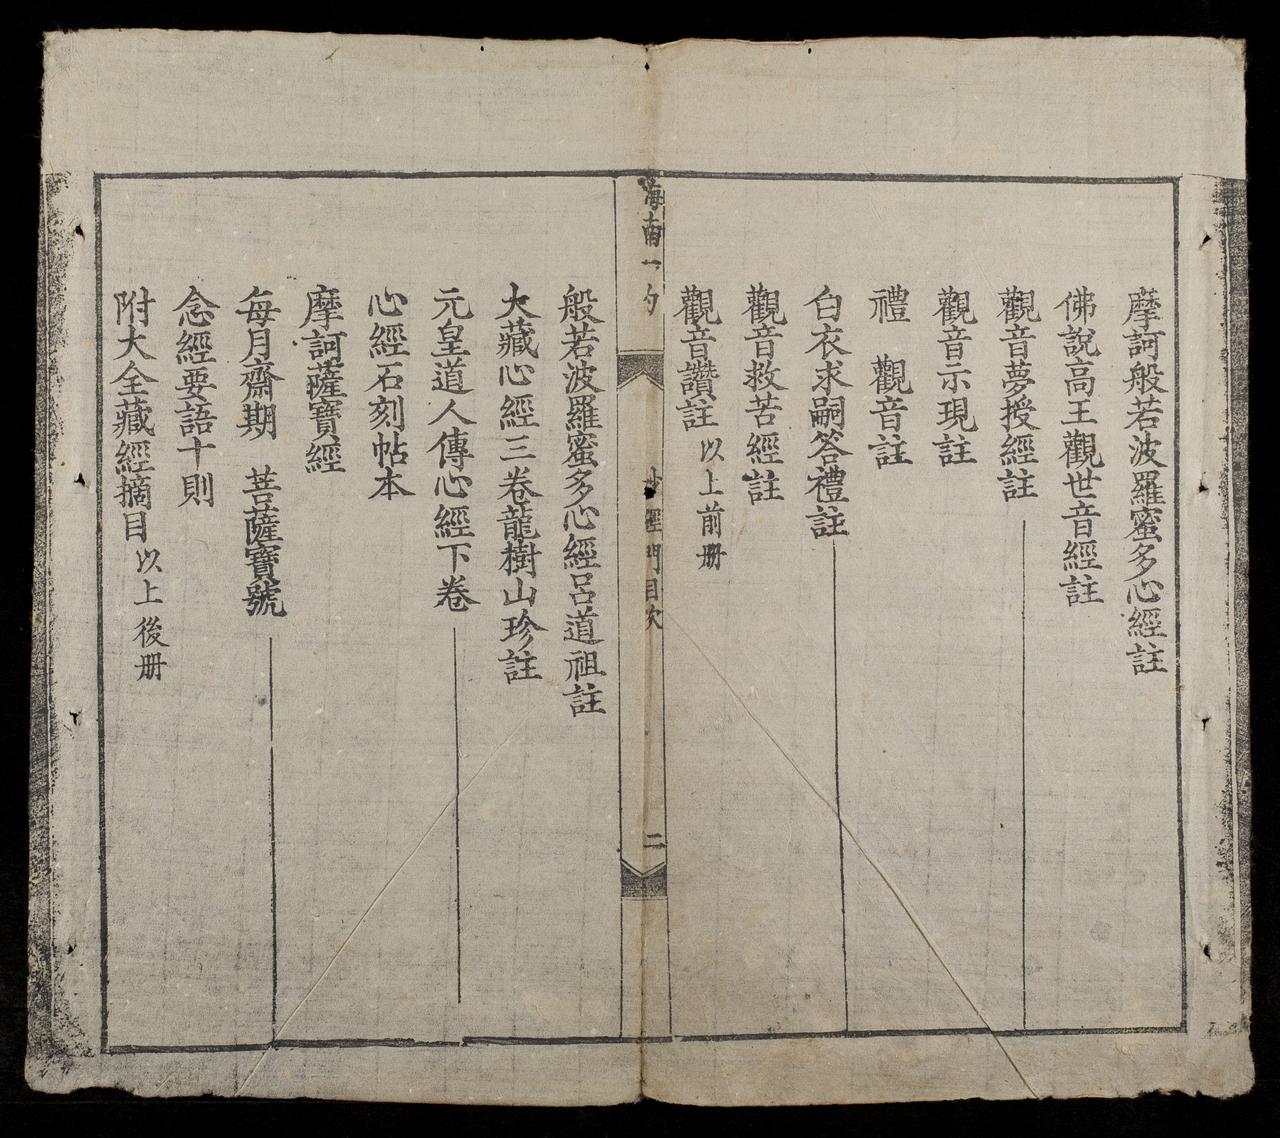 摩訶般若波羅蜜多心經註
佛說高王觀世音經註
觀音夢授經註
觀音示現註
禮　觀音註
白衣求嗣答禮註
觀音救苦經註
觀音讚註 以上前册
海南一勺
經門目次
二
般若波羅蜜多心經呂道祖註
大藏心經三卷龍樹山珍註
元皇道人傳心經下卷
心經石刻帖本
摩訶薩寶經
每月齋期　菩薩寶號
念經要語十則
附大全藏經摘目 以上後册